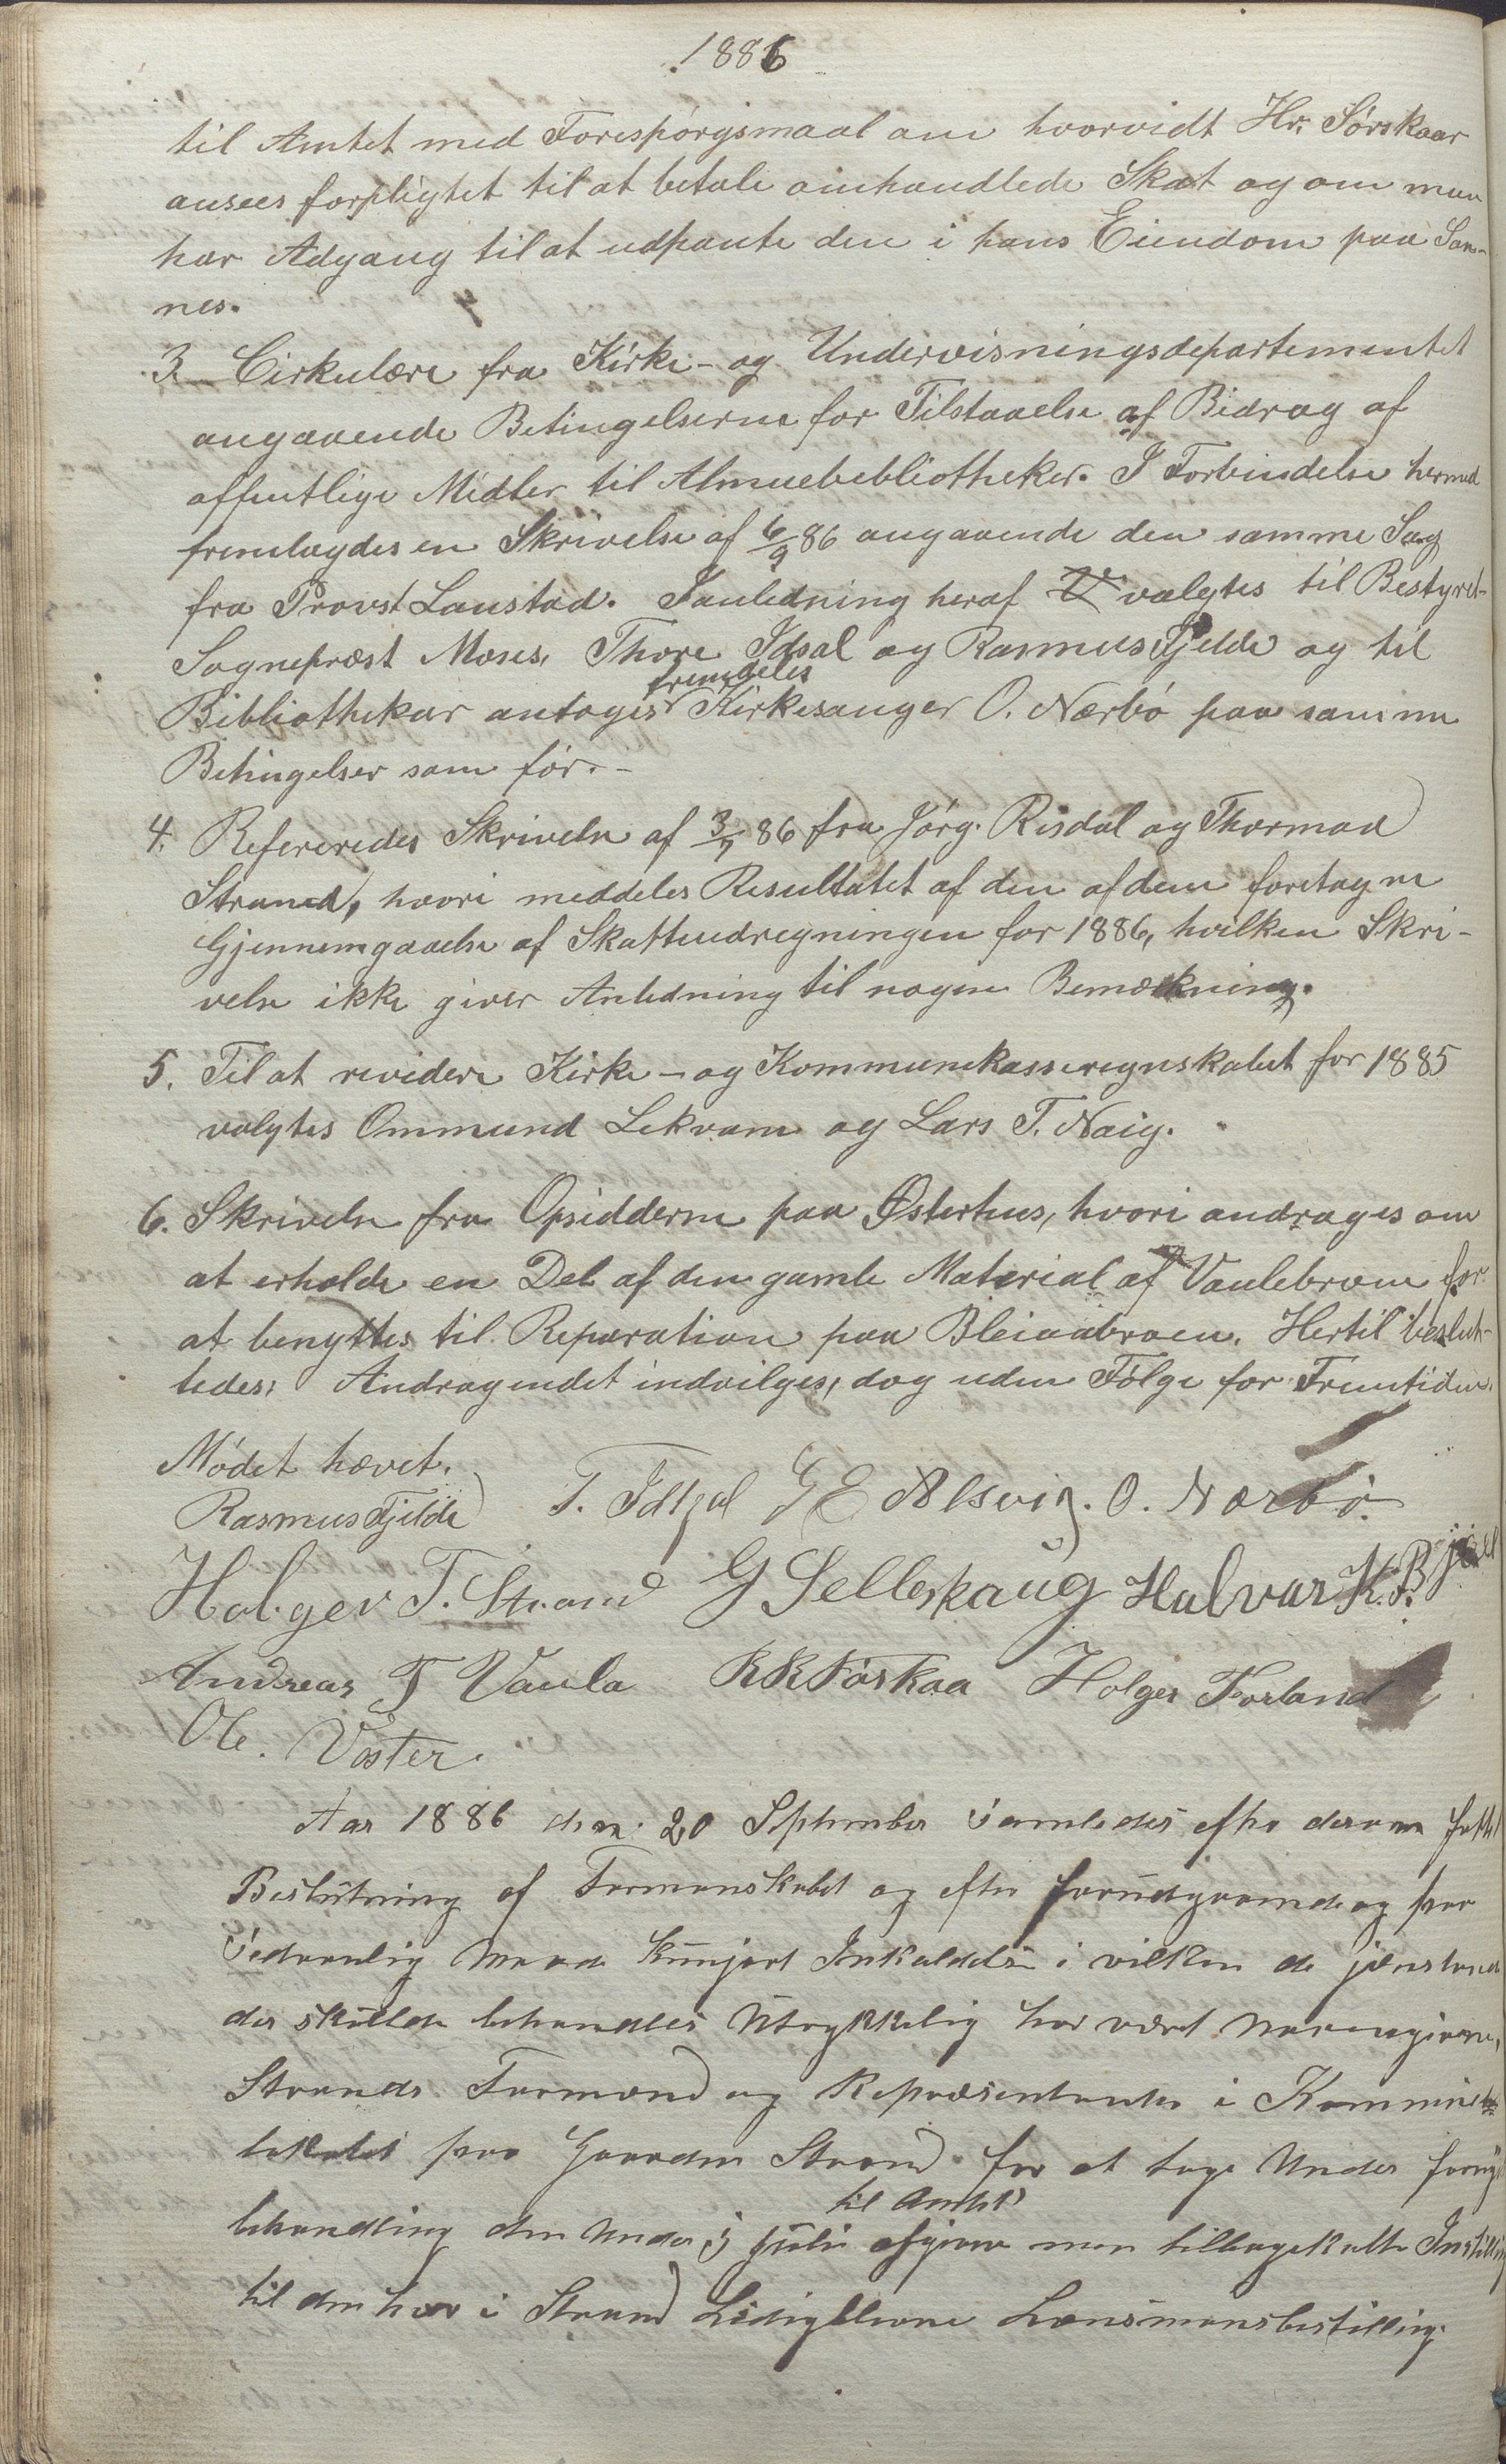 1886
til Amtet med Forespørgsmaal om hvorvidt Hr. Sørskaar
ansees forpligtet til at betale omhandlede Skat og om man
har Adgang til at udpante den i hans Eiendom paa San-
nes.
3. Cirkulære fra Kirke- og Undervisningsdepartementet
angaaende Betingelserne for Tilstaaelse af Bidrag af
offentlige Midler til Almuebibliotheker. I Forbindelse hermed
fremlagdes en Skrivelse af 6/9 86 angaaende den samme Sag
fra Provst Lanstad. I anledning heraf valgtes til Bestyrel-
Sognepræst Moses, Thore Idsal og Rasmus Fjelde og til
Bibliothekar antoges fremdeles Kirkesanger O. Nærbø paa samme
Betingelser som før.-
4. Refereredes Skrivelse af 3/7 86 fra Jørg. Risdal og Thormod
Strand, hvori meddeles Resultatet af den af dem foretagne
Gjennemgaaelse af Skatteudregningen for 1886, hvilken Skri-
velse ikke giver Anledning til nogen Bemærkning.
5. Til at revidere Kirke- og Kommunekasseregnskabet for 1885
valgtes Ommund Lekvam og Lars T. Naig.
6. Skrivelse fra Opsidderne paa Østerhus, hvori andrages om
at erholde en Del af den gamle Material af Vaulebroen for
at benyttes til Reparation paa Bleiaabroen. Hertil beslut-
tedes: Andragendet indvilges, dog uden Følge for Fremtiden.
Mødet hævet.
Rasmus Fjelde T. Idsal G E Alsvig. O. Nærbø.
Holger T. Strand G Sellerkaug Halvar K. B
Andreas T Vaula R K Fiskaa Holger Forland
Ole. Voster.
Aar 1886 den 20 September samledes efter derom fattet
Beslutning af Formanskabet og efter forudgaaende og paa
sedvanlig Maade kunjort Inkaldelse i vilken de jenstande
der skulde behandles Utrykkelig har været Navengivne,
Strands Formænd og Repræsentanter i Kommune
lokalet paa Gaarden Strand for at tage Under fornyet
behandling den Under juli til Amtet afgivne men tilbagekaldte Instilling
til den her i Strand Ledigblevne Lensmansbestilling.